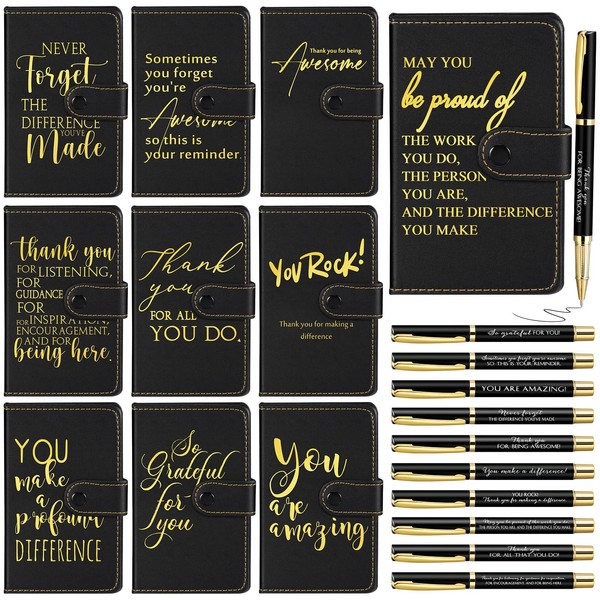 NEVER
Forget
THE
DIFFERENCE
YOU'VE
Made
Sometimes
you forget
you're
Awesome
so this is
your reminder.
Thank you for being
Awesome
MAY YOU
be proud of
THE WORK
YOU DO,
THE PERSON
YOU ARE,
AND THE DIFFERENCE
YOU MAKE
Thank you
FOR BEING AWESOME!
thank you
FOR LISTENING,
FOR
GUIDANCE
FOR
FOR INSPIRATION,
ENCOURAGEMENT,
AND FOR
being here.
Thank
you
FOR ALL
YOU DO.
YOU ROCK!
Thank you for making a
difference
YOU
make
a
profound
DIFFERENCE
So
Grateful
for
you
You
are
amazing
So grateful FOR YOU!
Sometimes you forget you're awesome
SO THIS IS YOUR REMINDER.
YOU ARE AMAZING!
Never forget
THE DIFFERENCE YOU'VE MADE.
Thank you
FOR BEING AWESOME!
You make a difference!
YOU ROCK!
Thank you for making a difference.
May you be proud of the work you do,
THE PERSON YOU ARE, AND THE DIFFERENCE YOU MAKE.
Thank you
FOR ALL THAT YOU DO!
Thank you for listening, for guidance, for inspiration,
FOR ENCOURAGEMENT, AND FOR BEING HERE.